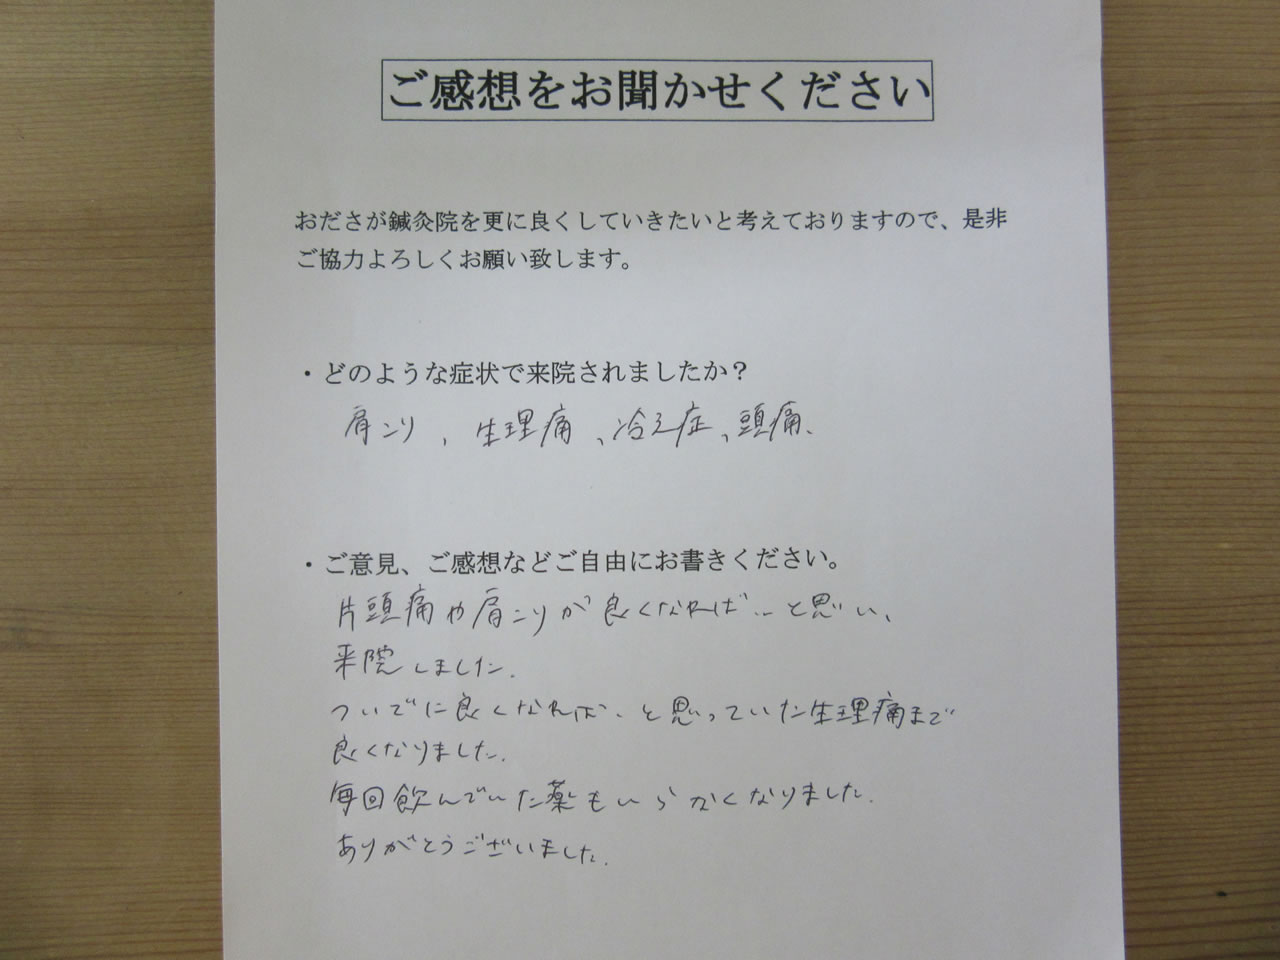 ご感想をお聞かせください
おださが鍼灸院を更に良くしていきたいと考えておりますので、是非
ご協力よろしくお願い致します。
・どのような症状で来院されましたか？
肩こり、生理痛、冷え症、頭痛、
・ご意見、ご感想などご自由にお書きください。
片頭痛や肩こりが良くなれば‥と思い、
来院しました。
ついでに良くなれば‥と思っていた生理痛まで
良くなりました。
毎回飲んでいた薬もいらなくなりました。
ありがとうございました。